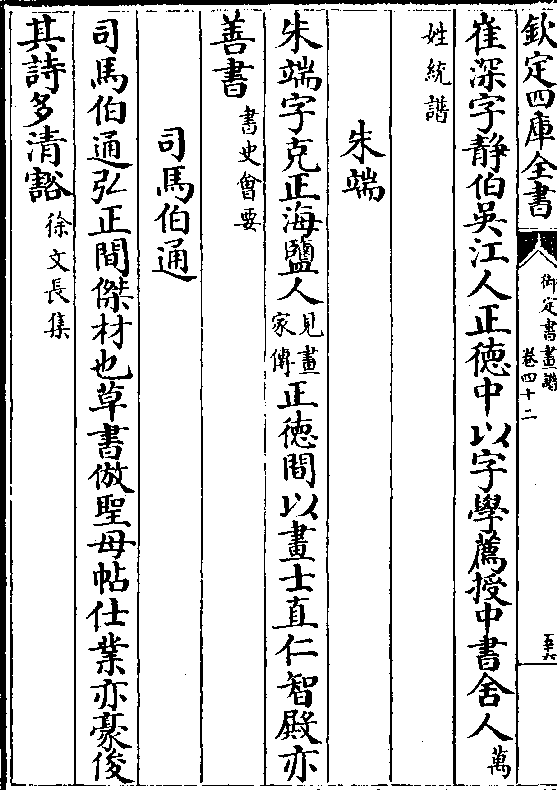 欽定四庫全書
御定書畫譜
卷四十二
五十六
崔深字靜伯吳江人正徳中以字學薦授中書舍人萬
姓統譜
朱端
朱端字克正海鹽人見畫家傳正徳間以畫士直仁智殿亦
善書書史會要
司馬伯通
司馬伯通弘正間傑材也草書倣聖母帖仕業亦豪俊
其詩多清豁徐文長集